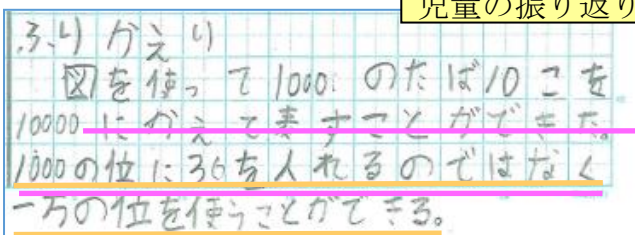 児童の振り返り
ふりかえり
図を使って1000のたば10こを
10000にかえて表すことができた。
1000の位に36を入れるのではなく
一万の位を使うことができる。